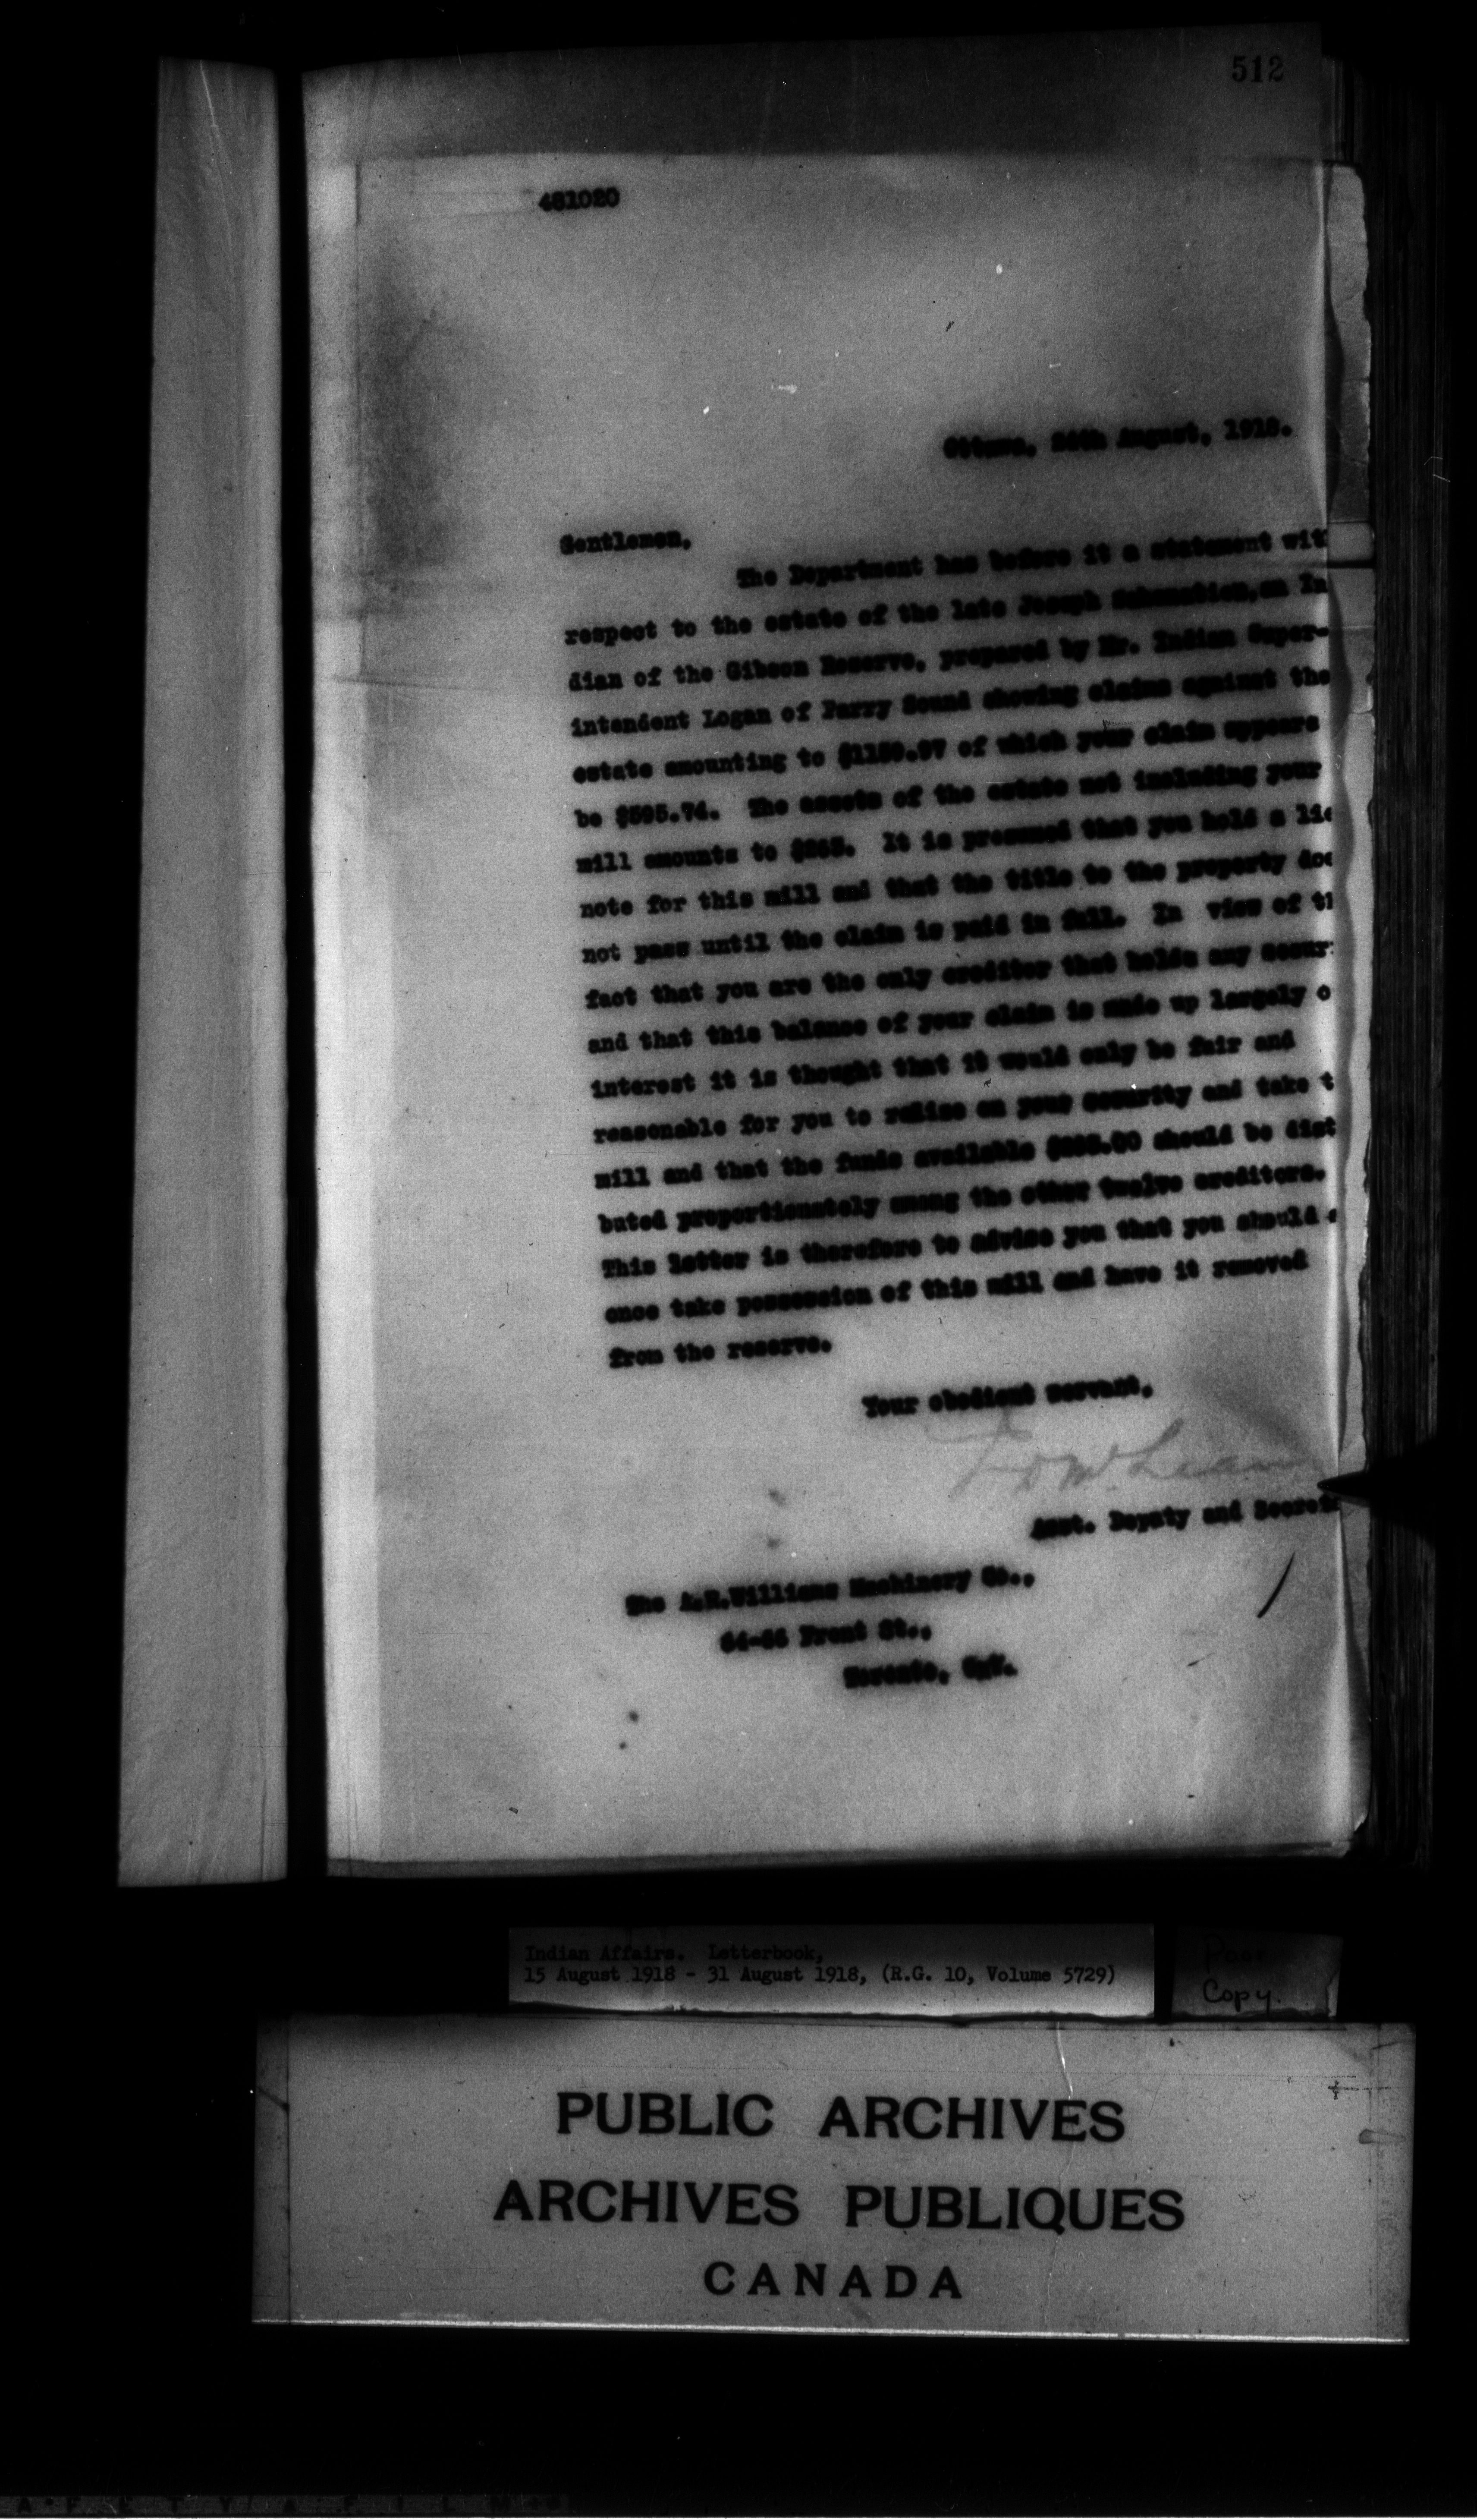 512
481020
Ottawa, August, 1918.
Gentlemen,
The Department has before it a statement wit
respect to the estate of the late Joseph an In
dian of the Gibson Reserve, prepared by Mr. Indian Super-
intendent Logan of Parry Sound showing claims against the
estate amounting to of which your claim appears
be $595.74. The assets of the estate not including your
mill amounts to It is presumed that you hold a lie
note for this mill and that the title to the property doe
not pass until the claim is paid in full. In view of th
fact that you are the only creditor that holds any secur
and that this balance of your claim is made up largely o
interest it is thought that it would only be fair and
reasonable for you to realise on your security and take t
mill and that the funds available should be dist
buted proportionately among the other twelve creditors.
This letter is therefore to advise you that you should
once take possession of this mill and have it removed
from the reserve.
Your obedient servant,
Asst. Deputy and Secret
The A.R.Williams Machinery Co.,
Front St.,
Toronto, Ont.
Indian Affairs. Letterbook,
15 August 1918 - 31 August 1918, (R.G. 10, Volume 5729)
Poor
Copy.
PUBLIC ARCHIVES
ARCHIVES PUBLIQUES
CANADA